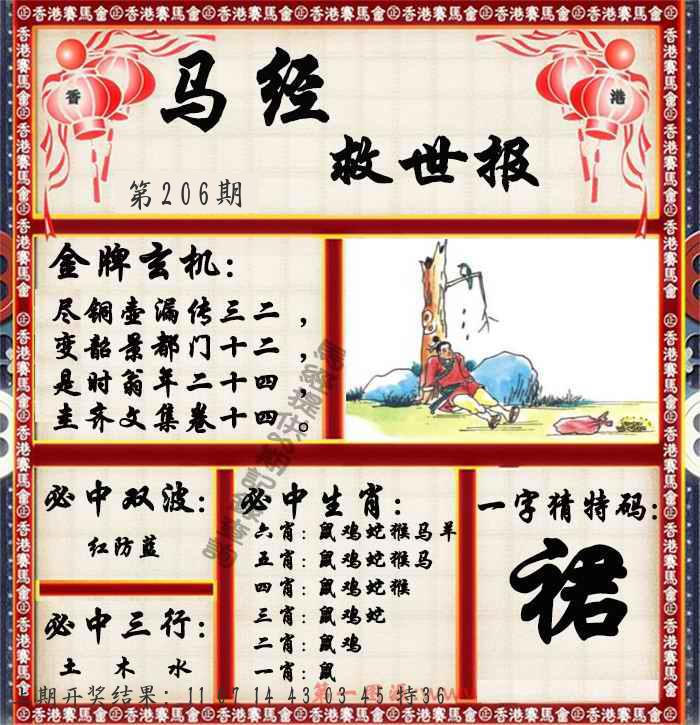 香港賽馬會
香
港
马经
救世报
第206期
金牌玄机：
尽铜壶漏传三二，
变韶景都门十二，
是时翁年二十四，
圭齐文集卷十四。
必中双波：
红防蓝
必中三行：
土 木 水
必中生肖：
六肖：鼠鸡蛇猴马羊
五肖：鼠鸡蛇猴马
四肖：鼠鸡蛇猴
三肖：鼠鸡蛇
二肖：鼠鸡
一肖：鼠
一字猜特码：
裙
期开奖结果：11 07 14 43 03 45 特36
第一图源